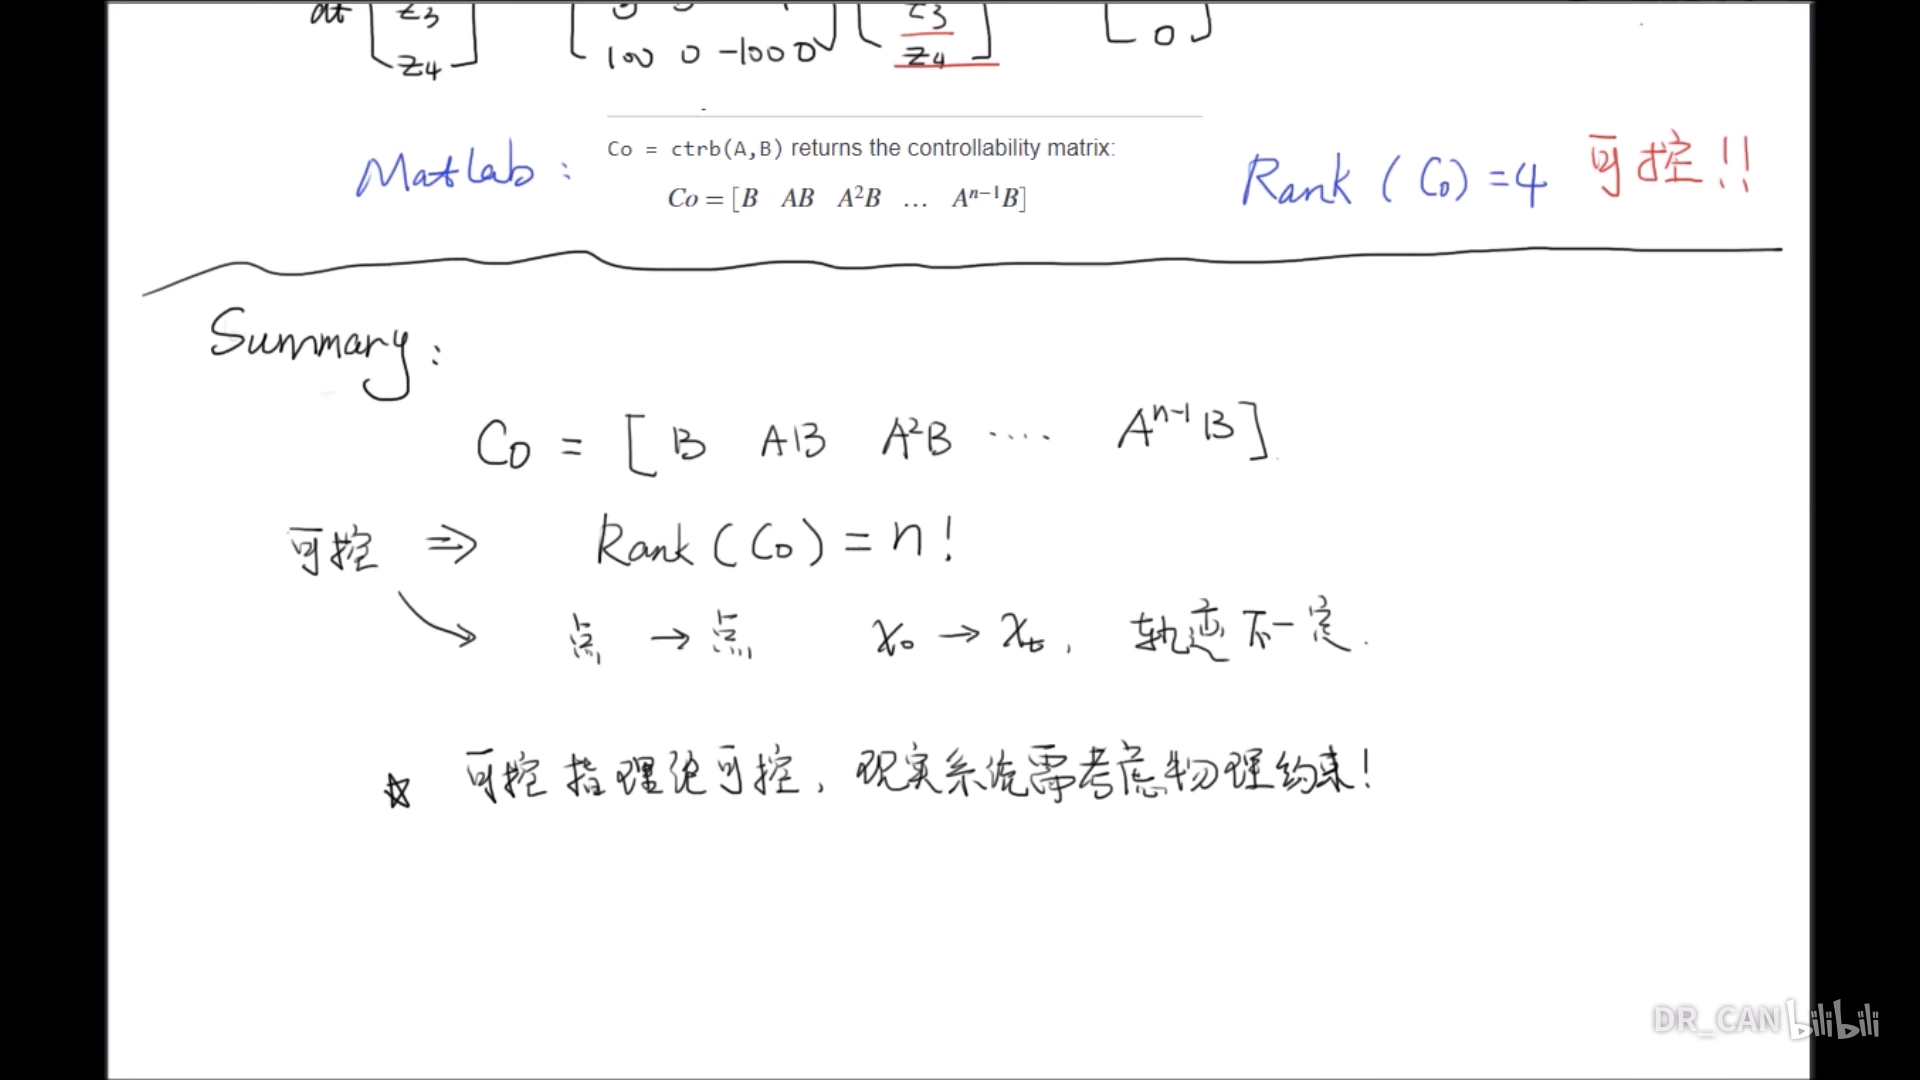 dt [ z3 ] [ z3 ]
z4 100 0 -100 0 z4 0
Matlab: Co = ctrb(A,B) returns the controllability matrix:
Co = [B AB A²B … Aⁿ⁻¹B] Rank (Co) = 4 可控!!
Summary:
Co = [ B AB A²B ···· Aⁿ⁻¹B ]
可控 ⇒ Rank (Co) = n!
点 → 点 x₀ → xₜ, 轨迹不一定.
☆ 可控指理论可控, 现实系统需考虑物理约束!
DR_CAN bilibili